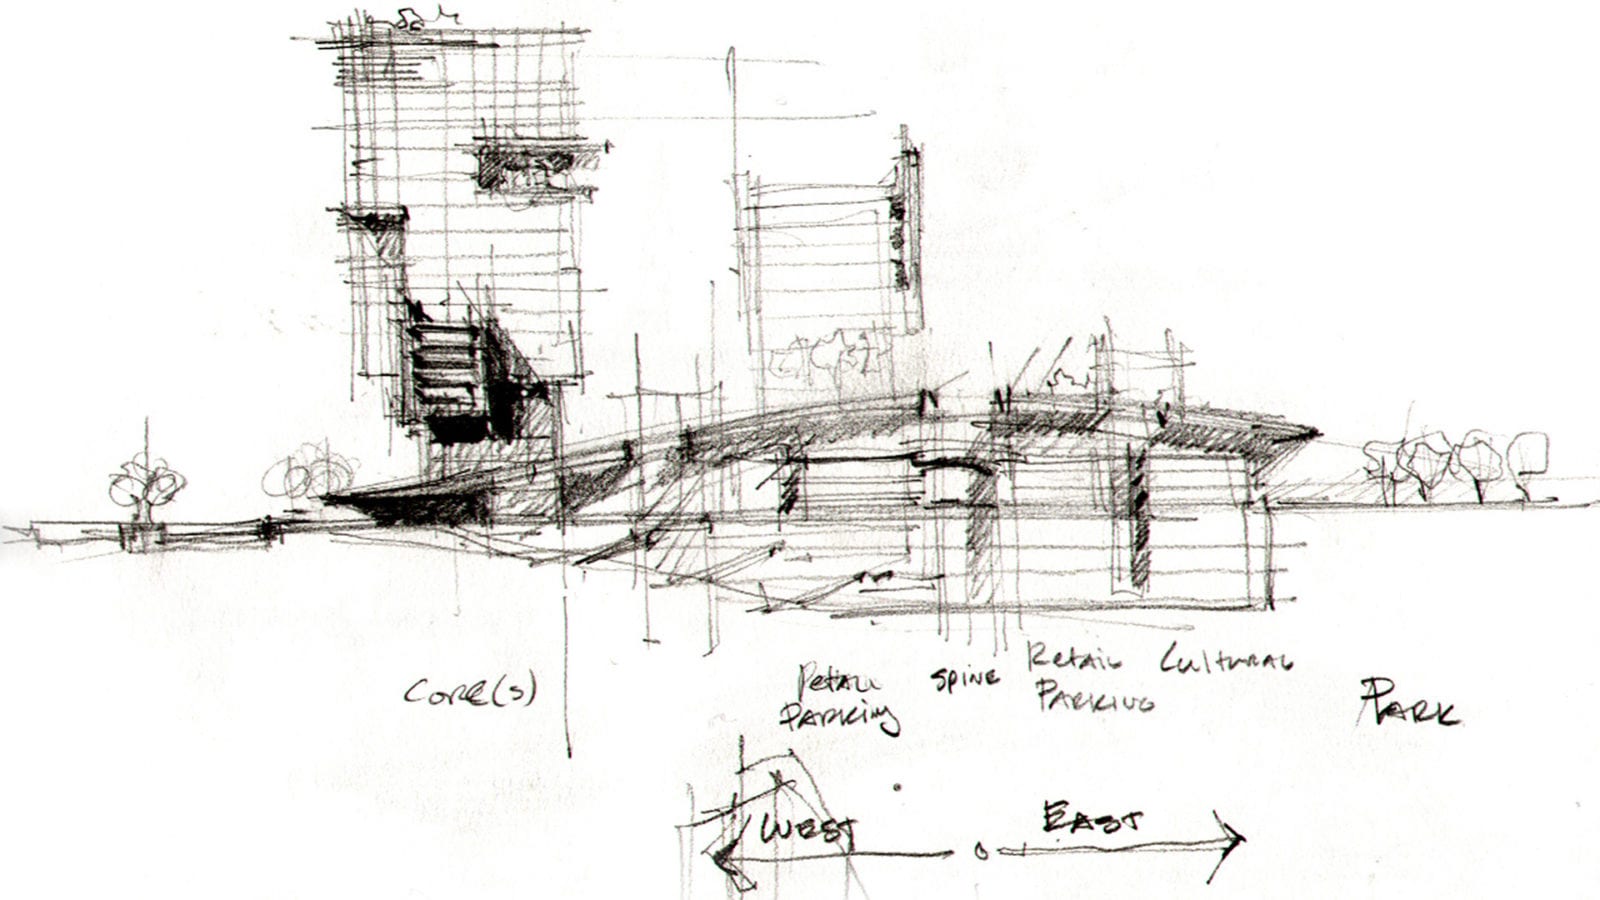 Core(s)
Retail
Parking
Spine
Retail Cultural
Parking
Park
West
East